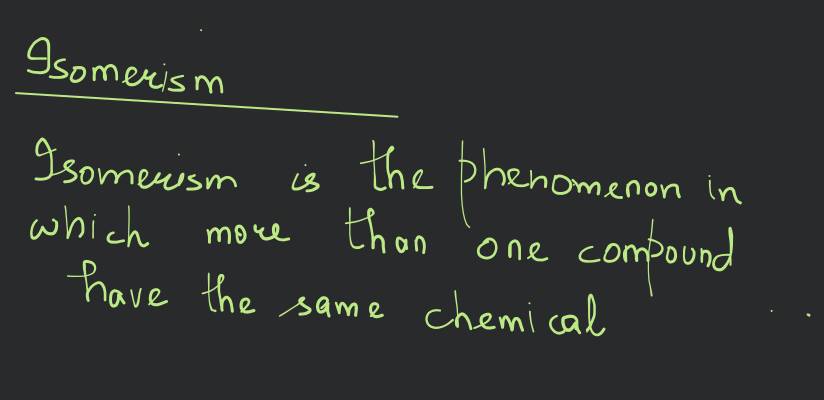 Isomerism
Isomerism is the phenomenon in
which more than one compound
have the same chemical